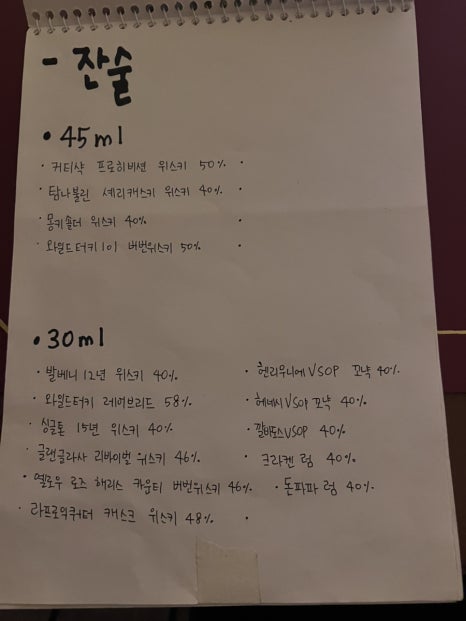 - 잔술
• 45ml
· 커티삭 프로히비션 위스키 50%
· 탐나불린 셰리캐스키 위스키 40%
· 몽키숄더 위스키 40%
· 와일드터키101 버번위스키 50%
• 30ml
· 발베니 12년 위스키 40%
· 와일드터키 레어브리드 58%
· 싱글톤 15년 위스키 40%
· 글랜글라사 리바이벌 위스키 46%
· 옐로우 로즈 해리스 카운티 버번위스키 46%
· 라프로익쿼터 캐스크 위스키 48%
· 헨리우니에 VSOP 꼬냑 40%
· 헤네시 VSOP 꼬냑 40%
· 깔바도스 VSOP 40%
· 크라켄 럼 40%
· 돈파파 럼 40%